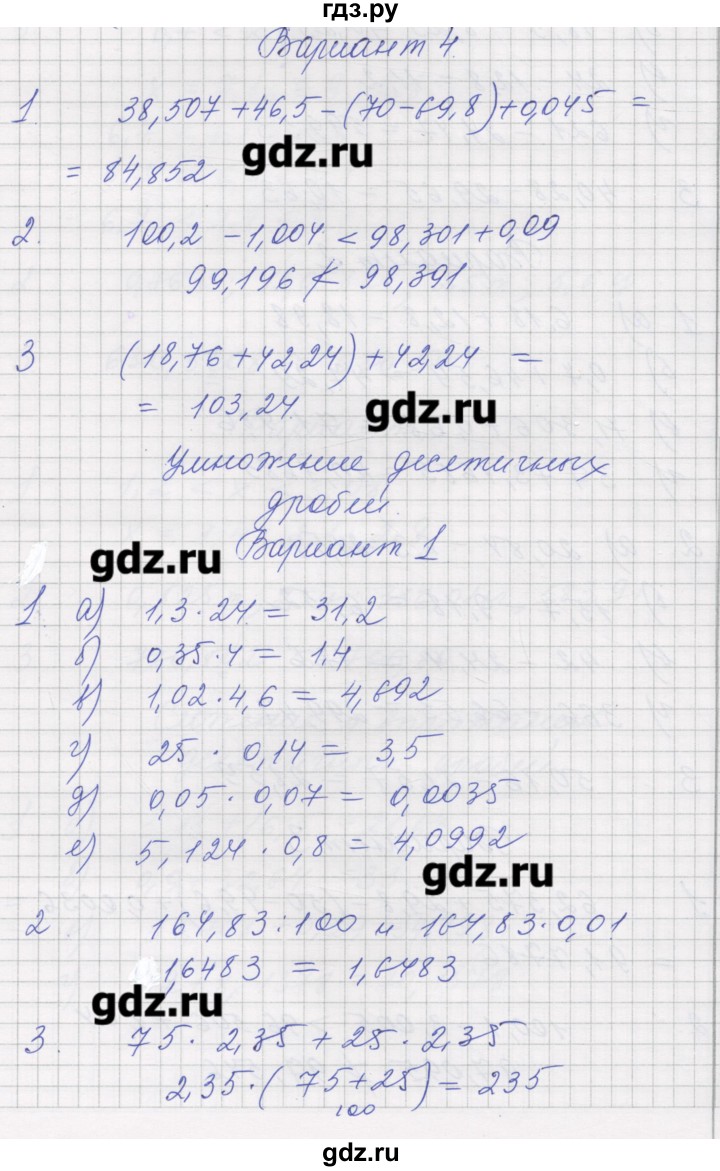 гдз.ру
Вариант 4.
1 38,507+46,5-(70-69,8)+0,045 =
= 84,852
gdz.ru
2. 100,2 - 1,004 < 98,301+0,09
99,196 ≮ 98,391
3 (18,76+42,24)+42,24 =
= 103,24
gdz.ru
Умножение десетичных
дробей.
Вариант 1
gdz.ru
1 а) 1,3·24 = 31,2
б) 0,35·4 = 1,4
в) 1,02·4,6 = 4,692
г) 25 · 0,14 = 3,5
д) 0,05 · 0,07 = 0,0035
е) 5,124 · 0,8 = 4,0992
gdz.ru
2 164,83:100 и 164,83·0,01
1,6483 = 1,6483
gdz.ru
3. 75· 2,35 + 25 · 2,35
2,35·(75+25) = 235
100
gdz.ru